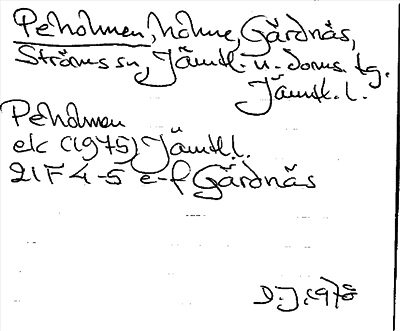 Peholmen, holme, Gårdnäs,
Ströms sn, Jämtl. n. doms. tg.
Jämtl. l.
Peholmen
ek (1975) Jämtl. l.
21F 4-5 e-f Gårdnäs
D. J. 1978